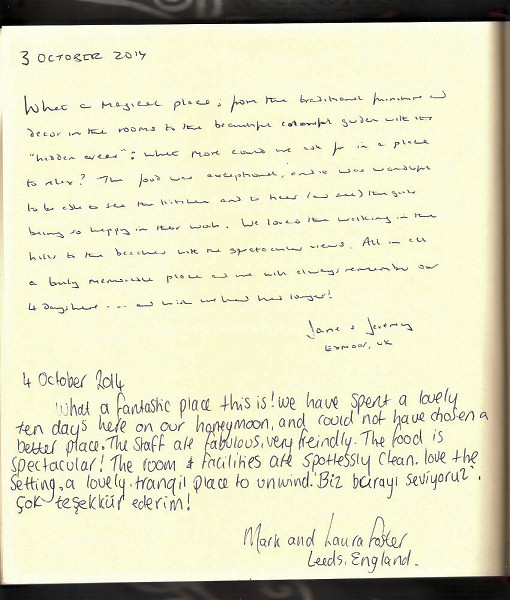 3 OCTOBER 2014
What a magical place; from the traditional furniture and
decor in the rooms to the beautiful colourful garden with its
"hidden areas": what more could we ask for in a place
to relax? The food was exceptional, and it was wonderful
to be able to see the kitchen and to hear (and see) the girls
being so happy in their work. We loved the walking in the
hills to the beaches with the spectacular views. All in all
a truly memorable place and we will always remember our
4 days here --- and wish we had had longer!
Jane & Jeremy
EXMOOR, UK
4 October 2014
What a fantastic place this is! We have spent a lovely
ten days here on our honeymoon, and could not have chosen a
better place. The staff are fabulous, very freindly. The food is
spectacular! The room & facilities are spotlessly clean. love the
setting, a lovely tranqil place to unwind. 'Biz burayı seviyoruz'.
Çok teşekkür ederim!
Mark and Laura Foster
Leeds. England.